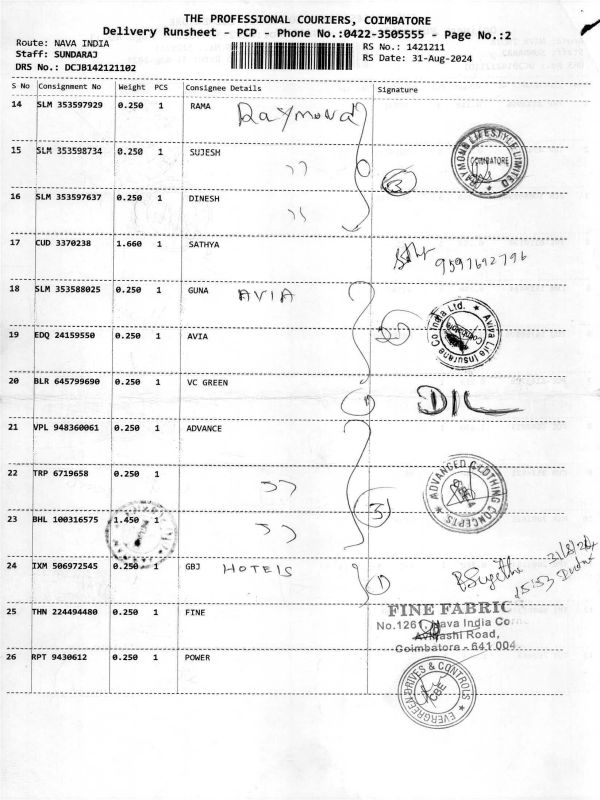 THE PROFESSIONAL COURIERS, COIMBATORE
Delivery Runsheet - PCP - Phone No.:0422-3505555 - Page No.:2
Route: NAVA INDIA
RS No.: 1421211
Staff: SUNDARAJ
RS Date: 31-Aug-2024
DRS No.: DCJB142121102
S No Consignment No Weight PCS Consignee Details Signature
14 SLM 353597929 0.250 1 RAMA Raymond
RAYMOND LIFESTYLE LIMITED
COIMBATORE
15 SLM 353598734 0.250 1 SUJESH ,,
3
16 SLM 353597637 0.250 1 DINESH ,,
17 CUD 3370238 1.660 1 SATHYA
9597692796
18 SLM 353588025 0.250 1 GUNA AVIA
Aviva Life Insurance Co India Ltd.
Coimbatore
19 EDQ 24159550 0.250 1 AVIA
20 BLR 645799690 0.250 1 VC GREEN
DIL
21 VPL 948360061 0.250 1 ADVANCE
22 TRP 6719658 0.250 1 ,,
ADVANCED CLOTHING CONCEPTS
23 BHL 100316575 1.450 1 ,,
3
24 IXM 506972545 0.250 1 GBJ HOTELS
1
31/8/24
15:53
25 THN 224494480 0.250 1 FINE
FINE FABRIC
No.1261, Nava India Corner
Avinashi Road,
Coimbatore - 641 004.
26 RPT 9430612 0.250 1 POWER
EVERGREEN DRIVES & CONTROLS
CBE